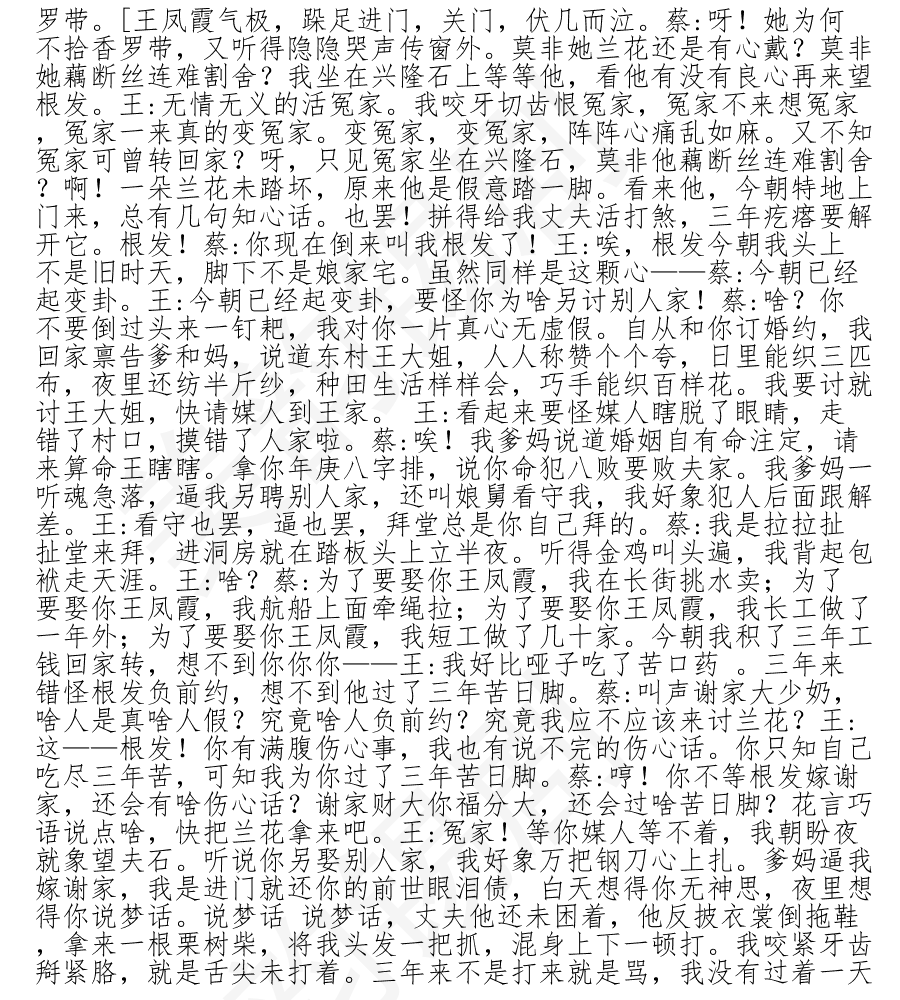 罗带。[王凤霞气极，跺足进门，关门，伏几而泣。蔡:呀！她为何
不拾香罗带，又听得隐隐哭声传窗外。莫非她兰花还是有心戴？莫非
她藕断丝连难割舍？我坐在兴隆石上等等他，看他有没有良心再来望
根发。王:无情无义的活冤家。我咬牙切齿恨冤家，冤家不来想冤家
，冤家一来真的变冤家。变冤家，变冤家，阵阵心痛乱如麻。又不知
冤家可曾转回家？呀，只见冤家坐在兴隆石，莫非他藕断丝连难割舍
？啊！一朵兰花未踏坏，原来他是假意踏一脚。看来他，今朝特地上
门来，总有几句知心话。也罢！拼得给我丈夫活打煞，三年疙瘩要解
开它。根发！蔡:你现在倒来叫我根发了！王:唉，根发今朝我头上
不是旧时天，脚下不是娘家宅。虽然同样是这颗心——蔡:今朝已经
起变卦。王:今朝已经起变卦，要怪你为啥另讨别人家！蔡:啥？你
不要倒过头来一钉耙，我对你一片真心无虚假。自从和你订婚约，我
回家禀告爹和妈，说道东村王大姐，人人称赞个个夸，日里能织三匹
布，夜里还纺半斤纱，种田生活样样会，巧手能织百样花。我要讨就
讨王大姐，快请媒人到王家。 王:看起来要怪媒人瞎脱了眼睛，走
错了村口，摸错了人家啦。蔡:唉！我爹妈说道婚姻自有命注定，请
来算命王瞎瞎。拿你年庚八字排，说你命犯八败要败夫家。我爹妈一
听魂急落，逼我另聘别人家，还叫娘舅看守我，我好象犯人后面跟解
差。王:看守也罢，逼也罢，拜堂总是你自己拜的。蔡:我是拉拉扯
扯堂来拜，进洞房就在踏板头上立半夜。听得金鸡叫头遍，我背起包
袱走天涯。王:啥？蔡:为了要娶你王凤霞，我在长街挑水卖；为了
要娶你王凤霞，我航船上面牵绳拉；为了要娶你王凤霞，我长工做了
一年外；为了要娶你王凤霞，我短工做了几十家。今朝我积了三年工
钱回家转，想不到你你你——王:我好比哑子吃了苦口药 。三年来
错怪根发负前约，想不到他过了三年苦日脚。蔡:叫声谢家大少奶，
啥人是真啥人假？究竟啥人负前约？究竟我应不应该来讨兰花？王:
这——根发！你有满腹伤心事，我也有说不完的伤心话。你只知自己
吃尽三年苦，可知我为你过了三年苦日脚。蔡:哼！你不等根发嫁谢
家，还会有啥伤心话？谢家财大你福分大，还会过啥苦日脚？花言巧
语说点啥，快把兰花拿来吧。王:冤家！等你媒人等不着，我朝盼夜
就象望夫石。听说你另娶别人家，我好象万把钢刀心上扎。爹妈逼我
嫁谢家，我是进门就还你的前世眼泪债，白天想得你无神思，夜里想
得你说梦话。说梦话 说梦话，丈夫他还未困着，他反披衣裳倒拖鞋
，拿来一根栗树柴，将我头发一把抓，混身上下一顿打。我咬紧牙齿
搿紧胳，就是舌尖未打着。三年来不是打来就是骂，我没有过着一天